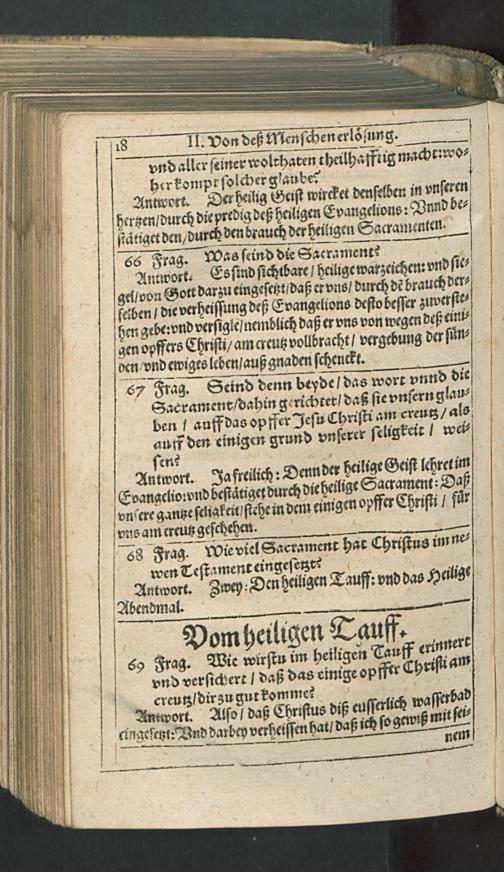 18 II. Von deß Menschen erlösung.
vnd aller seiner wolthaten theilhafftig macht: wo-
her kompt solcher glaube?
Antwort. Der heilig Geist wircket denselben in vnseren
hertzen/durch die predig deß heiligen Evangelions: Vnnd be-
stätiget den/durch den brauch der heiligen Sacramenten.
66 Frag. Was seind die Sacrament?
Antwort. Es sind sichtbare/ heilige warzeichen: vnd sie-
gel/von Gott darzu eingesetzt/daß er vns/ durch dē brauch der-
selben/ die verheissung deß Evangelions desto besser zuverste-
hen gebe: vnd versigle/nemblich daß er vns von wegen deß eini-
gen opffers Christi/ am creutz vollbracht/ vergebung der sün-
den/vnd ewiges leben/auß gnaden schenckt.
67 Frag. Seind denn beyde/ das wort vnnd die
Sacrament/dahin gerichtet/daß sie vnsern glau-
ben / auff das opffer Jesu Christi am creutz/ als
auff den einigen grund vnserer seligkeit / wei-
sen?
Antwort. Ja freilich: Denn der heilige Geist lehret im
Evangelio: vnd bestätiget durch die heilige Sacrament: Daß
vnsere gantze seligkeit/stehe in dem einigen opffer Christi / für
vns am creutz geschehen.
68 Frag. Wie viel Sacrament hat Christus im ne-
wen Testament eingesetzt?
Antwort. Zwey: Den heiligen Tauff: vnd das Heilige
Abendmal.
Vom heiligen Tauff.
69 Frag. Wie wirstu im heiligen Tauff erinnert
vnd versichert / daß das einige opffer Christi am
creutz/dir zu gut komme?
Antwort. Also/ daß Christus diß eusserlich wasserbad
eingesetzt: Vnd darbey verheissen hat/ daß ich so gewiß mit sei-
nem